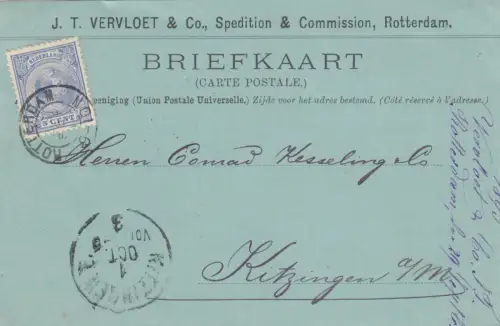 J. T. VERVLOET & Co., Spedition & Commission, Rotterdam.
BRIEFKAART
(CARTE POSTALE.)
eeniging (Union Postale Universelle.) Zijde voor het adres bestemd. (Côté réservé à l'adresse.)
NEDERLAND
5 CENT
ROTTERDAM
Herren Conrad Kesseling & Co
Kitzingen a/M
KITZINGEN
1
OCT
VOR
3
Vervloet & Co.
Rotterdam,